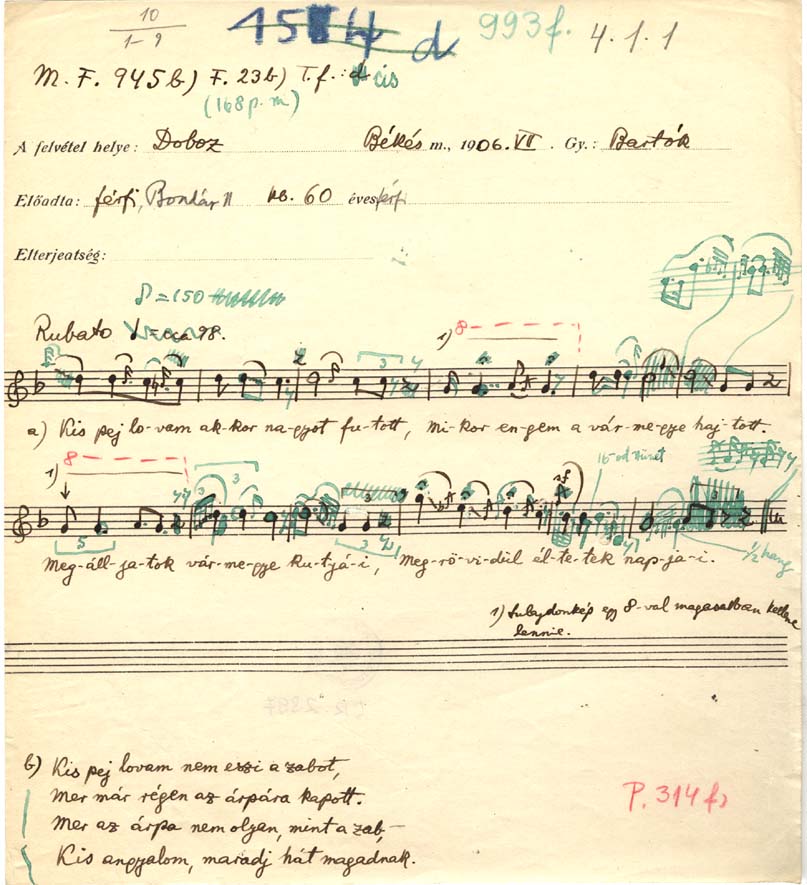 10
1-9
1544 d
993f.
4.1.1
M. F. 945b) F. 23b) T. f.: d cis
(168 p. m.)
A felvétel helye: Doboz Békés m., 1906. VII. Gy.: Bartók
Előadta: férfi, Bondár kb. 60 éves férfi
Elterjeatség:
♪=150
Rubato = ca 98.
1) 8
3
a) Kis pej lo-vam ak-kor na-gyot fu-tott, mi-kor en-gem a vár-me-gye haj-tott.
1) 8
3
sf
16-od
3
5
3
Meg-áll-ja-tok vár-me-gye ku-tyá-i, Meg-rö-vi-dül él-te-tek nap-ja-i.
½ hang
1) Tulajdonkép egy 8-val magasabban kellene
lennie.
b) Kis pej lovam nem eszi a zabot,
Mer már régen az árpára kapott.
Mer az árpa nem olyan, mint a zab,–
Kis angyalom, maradj hát magadnak.
P. 314 f.